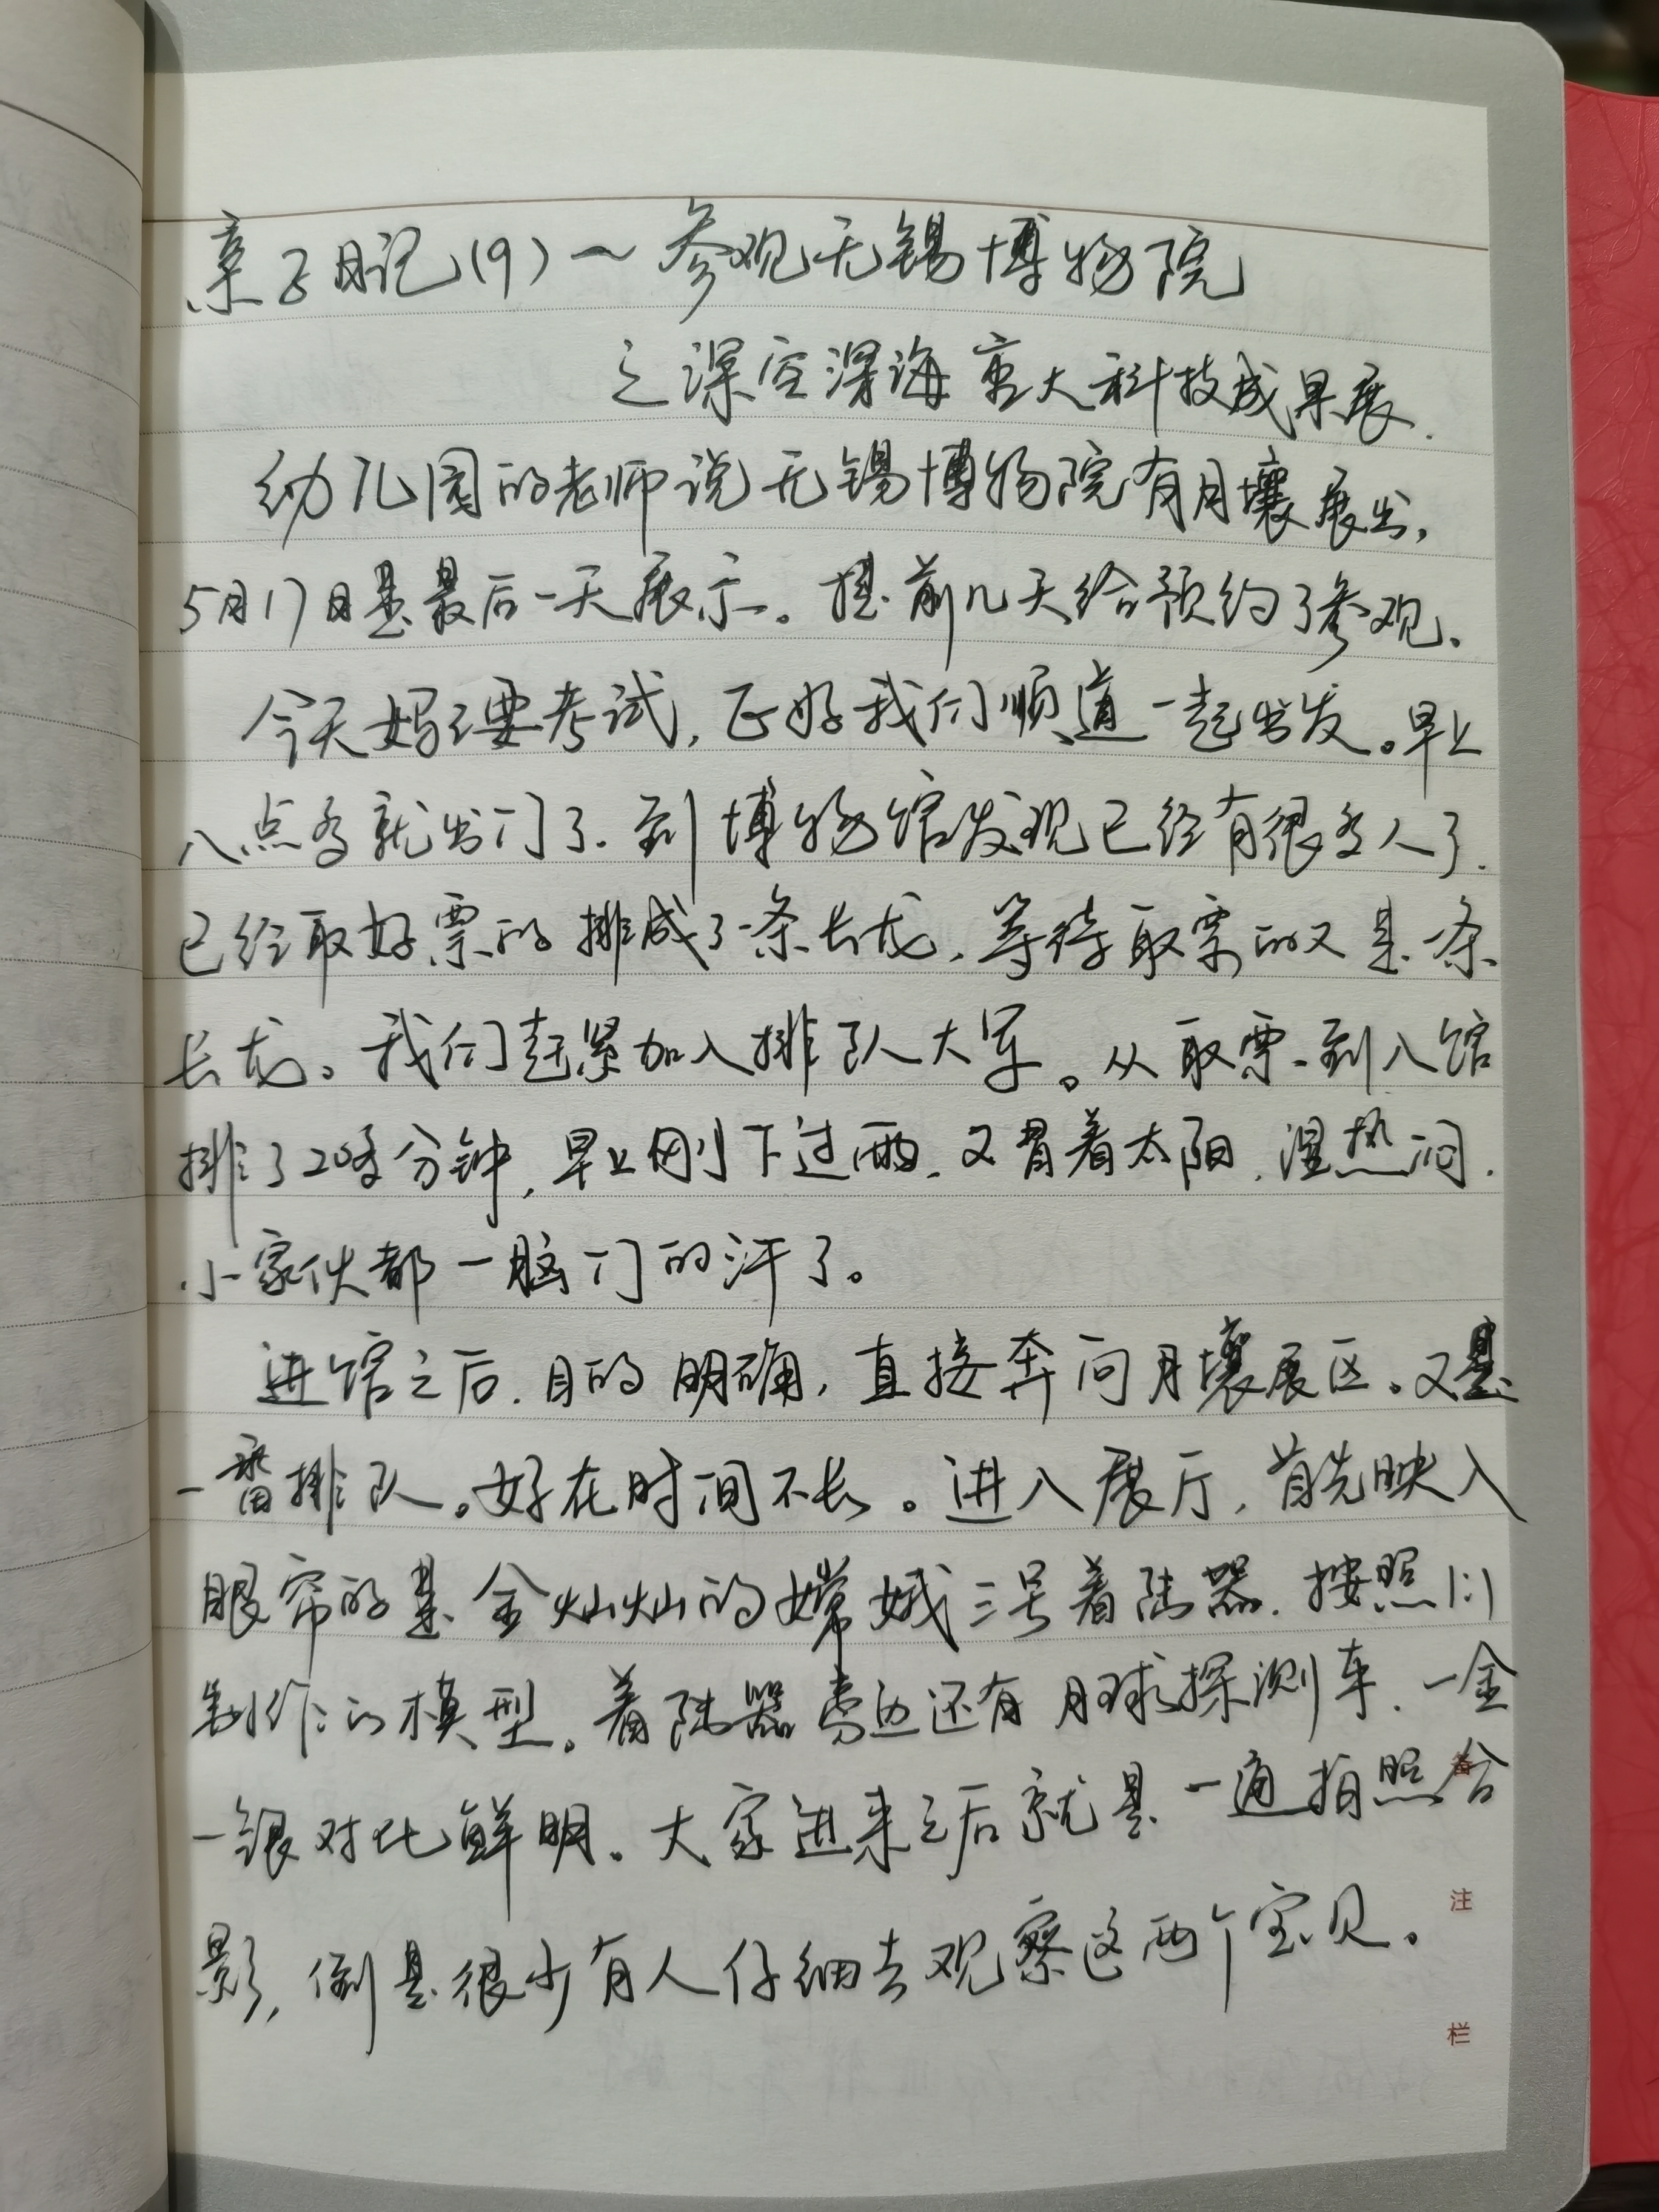 亲子日记(9)~参观无锡博物院
之深空深海重大科技成果展.
幼儿园的老师说无锡博物院有月壤展出,
5月17日是最后一天展示。提前几天给预约了参观.
今天妈妈要考试,正好我们顺道一起出发。早上
八点多就出门了.到博物馆发现已经有很多人了.
已经取好票的排成了一条长龙,等待取票的又是一条
长龙。我们赶紧加入排队大军。从取票到入馆
排了20多分钟,早上刚下过雨.又冒着太阳,湿热闷.
小家伙都一脑门的汗了。
进馆之后.目的明确,直接奔向月壤展区。又是
一番排队。好在时间不长。进入展厅,首先映入
眼帘的是金灿灿的嫦娥三号着陆器.按照1:1
制作的模型。着陆器旁边还有月球探测车.一金
一银对比鲜明。大家进来之后就是一通拍照合
影,倒是很少有人仔细去观察这两个宝贝。
备
注
栏